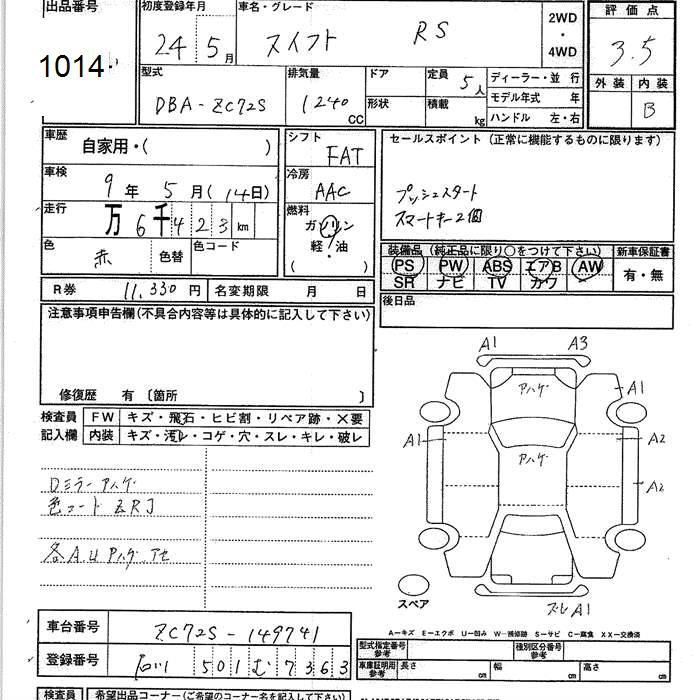 出品番号
1014
初度登録年月
24年5月
車名・グレード
スイフト RS
2WD・4WD
評価点
3.5
外装 内装
B
型式
DBA-ZC72S
排気量
1240 CC
ドア
形状
定員 5人
積載 kg
ディーラー・並行
モデル年式 年
ハンドル 左・右
車歴
自家用・( )
車検
9年 5月(14日)
走行
万6千423km
色 赤 色替 色コード
シフト
FAT
冷房
AAC
燃料
ガソリン
軽・油
( )
セールスポイント(正常に機能するものに限ります)
プッシュスタート
スマートキー2個
装備品(純正品に限り○をつけて下さい) 新車保証書
PS PW ABS エアB AW 有・無
SR ナビ TV カワ
R券 11,330円 名変期限 月 日
後日品
注意事項申告欄(不具合内容等は具体的に記入して下さい)
修復歴 有〔箇所 〕
検査員 FW キズ・飛石・ヒビ割・リペア跡・×要
記入欄 内装 キズ・汚レ・コゲ・穴・スレ・キレ・破レ
Dミラー アハゲ
色コード ZRJ
各AU アハゲ アセ
A1 A3
アハゲ A1
A1 A2
アハゲ
A2
スペア
ズレA1
A-キズ E-エクボ U-凹み W-補修跡 S-サビ C-腐食 XX-交換済
車台番号 ZC72S-149741
登録番号 石川 501 む 7363
型式指定番号 参考 種別区分番号 参考
車庫証明用 参考 長さ cm 幅 cm 高さ cm
検査員 希望出品コーナー(ご希望のコーナー名を記入して下さい)